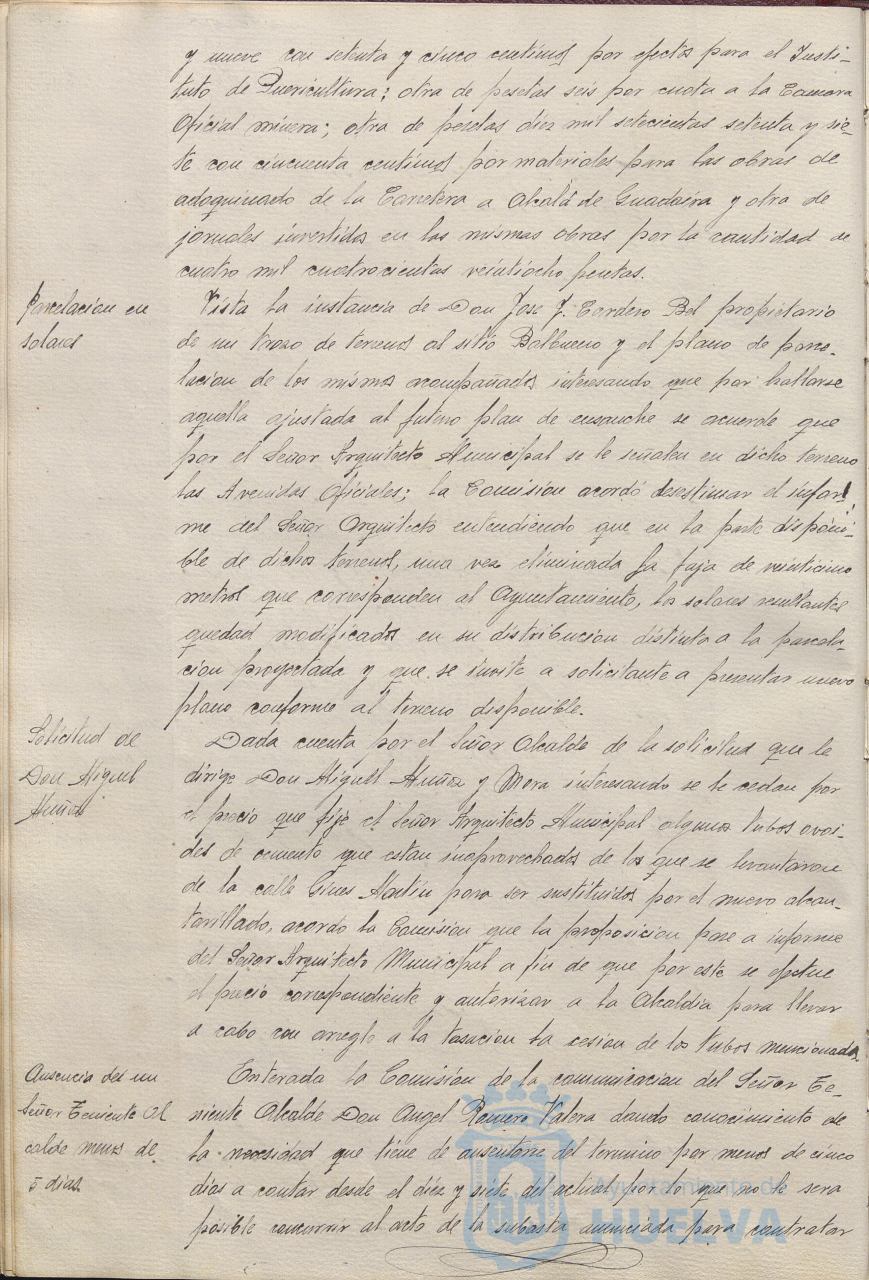 y nueve con setenta y cinco centimos por efectos para el Insti-
tuto de Puericultura; otra de pesetas seis por cuota a la Camara
Oficial minera; otra de pesetas diez mil setecientas setenta y sie-
te con cincuenta centimos por materiales para las obras de
adoquinado de la Carretera a Alcalá de Guadaira y otra de
jornales invertidos en las mismas obras por la cantidad de
cuatro mil cuatrocientas veintiocho pesetas.
Parcelacion en
solares
Vista la instancia de Don Jose J. Cordero Bel propietario
de un trozo de terrenos al sitio Balbueno y el plano de parce-
lacion de los mismos acompañados interesando que por hallarse
aquella ajustada al futuro plan de ensanche se acuerde que
por el Señor Arquitecto Municipal se le señalen en dicho terreno
las Avenidas Oficiales; la Comisión acordó desestimar el infor-
me del Señor Arquitecto entendiendo que en la parte disponi-
ble de dichos terrenos, una vez eliminada la faja de veinticinco
metros que corresponden al Ayuntamiento, los solares resultantes
quedan modificados en su distribucion distinta a la parcela-
cion proyectada y que se invite a solicitante a presentar nuevo
plano conforme al terreno disponible.
Solicitud de
Don Miguel
Muñoz
Dada cuenta por el Señor Alcalde de la solicitud que le
dirige Don Miguel Muñoz y Mora interesando se le cedan por
el precio que fije el Señor Arquitecto Municipal algunos tubos ovoi-
des de cemento que estan inaprovechados de los que se levantaron
de la calle Gines Martin para ser sustituidos por el nuevo alcan-
tarillado, acordo la Comisión que la proposicion pase a informe
del Señor Arquitecto Municipal a fin de que por este se efectue
el precio correspondiente y autorizar a la Alcaldia para llevar
a cabo con arreglo a la tasacion la cesion de los tubos mencionados.
Ausencia de un
Señor Teniente Al
calde menos de
5 dias
Enterada la Comisión de la comunicacion del Señor Te-
niente Alcalde Don Angel Romero Valera dando conocimiento de
la necesidad que tiene de ausentarse del termino por menos de cinco
dias a contar desde el diez y siete del actual por lo que no le sera
posible concurrir al acto de la subasta anunciada para contratar
Ayuntamiento de
HUELVA